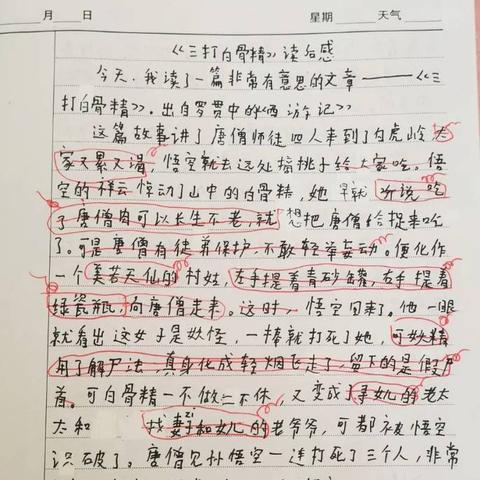 月 日 星期 天气
《三打白骨精》读后感
今天，我读了一篇非常有意思的文章——《三
打白骨精》。出自罗贯中的《西游记》
这篇故事讲了唐僧师徒四人来到了白虎岭，大
家又累又渴，悟空就去远处摘桃子给大家吃。悟
空的祥云惊动了山中的白骨精，她早就听说吃
了唐僧肉可以长生不老，就想把唐僧给捉来吃
了。可是唐僧有徒弟保护，不敢轻举妄动。便化作
一个美若天仙的村姑，左手提着青砂罐，右手提着
绿瓷瓶，向唐僧走来。这时，悟空回来了。他一眼
就看出这女子是妖怪，一棒就打死了她，可妖精
用了解尸法，真身化成轻烟飞走了，留下的是假尸
首。可白骨精一不做二不休，又变成了寻女儿的老太
太和 找妻子和女儿的老爷爷，可都被悟空
识破了。唐僧见孙悟空一连打死了三个人，非常